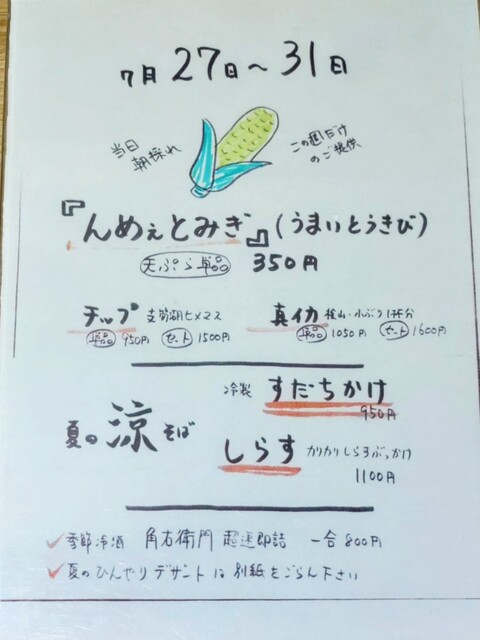 7月27日～31日
当日
朝採れ
この週だけ
のご提供
『んめぇとみぎ』(うまいとうきび)
天ぷら単品 350円
チップ 支笏湖ヒメマス
単品 950円 セット 1500円
真イカ 桧山・小ぶり1杯分
単品 1050円 セット 1600円
夏の涼そば
冷製 すだちかけ
950円
しらす カリカリしらすぶっかけ
1100円
✓季節冷酒 角右衛門 超速即詰 一合800円
✓夏のひんやりデザートは別紙をごらん下さい